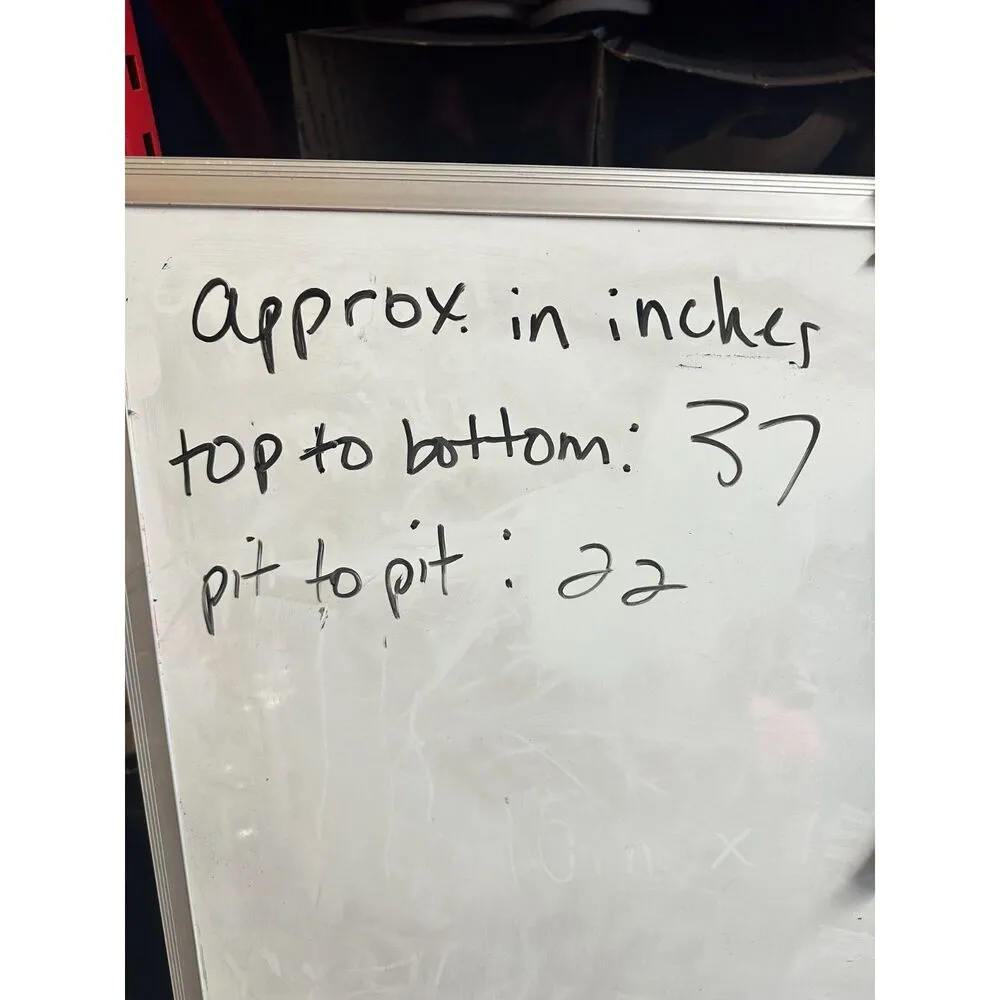 approx. in inches
top to bottom: 37
pit to pit: 22